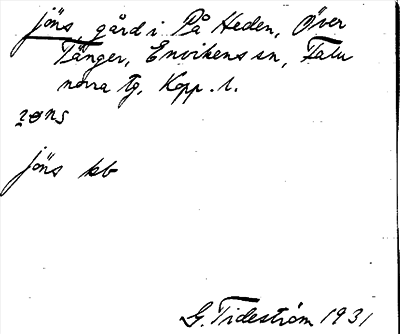 jöns, gård i På Heden, Över
Tänger, Envikens sn, Falu
norra tg, Kopp. l.
jöns kb
G. Tideström 1931